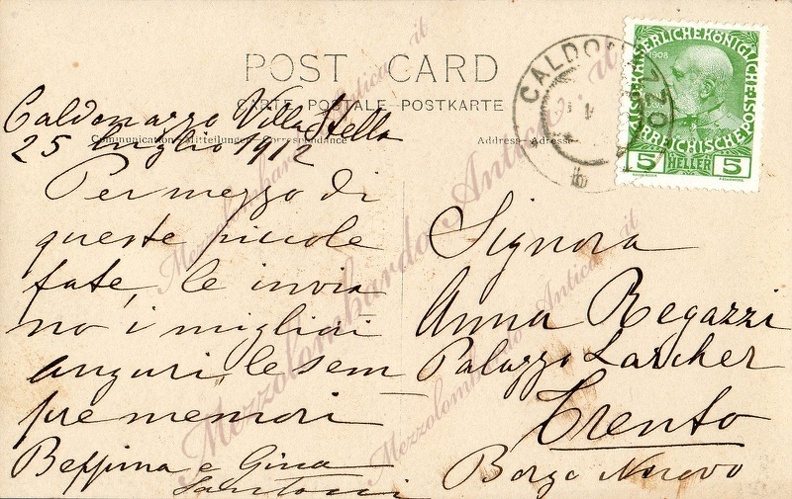 POST CARD
CARTE POSTALE - POSTKARTE
Communication - Mitteilungen - Correspondance
Address - Adresse
Caldonazzo Villa Stella
25 luglio 1912
Per mezzo di
queste piccole
fate, le invia
no i migliori
auguri, le sem
pre memori
Beppina e Gina
Signora
Anna Regazzi
Palazzo Larcher
Trento
Borgo Nuovo
CALDONAZZO
b
1908
5 HELLER 5
Mezzolombardo Antica .it
Mezzolombardo Antica .it
Mezzolombardo Antica .it